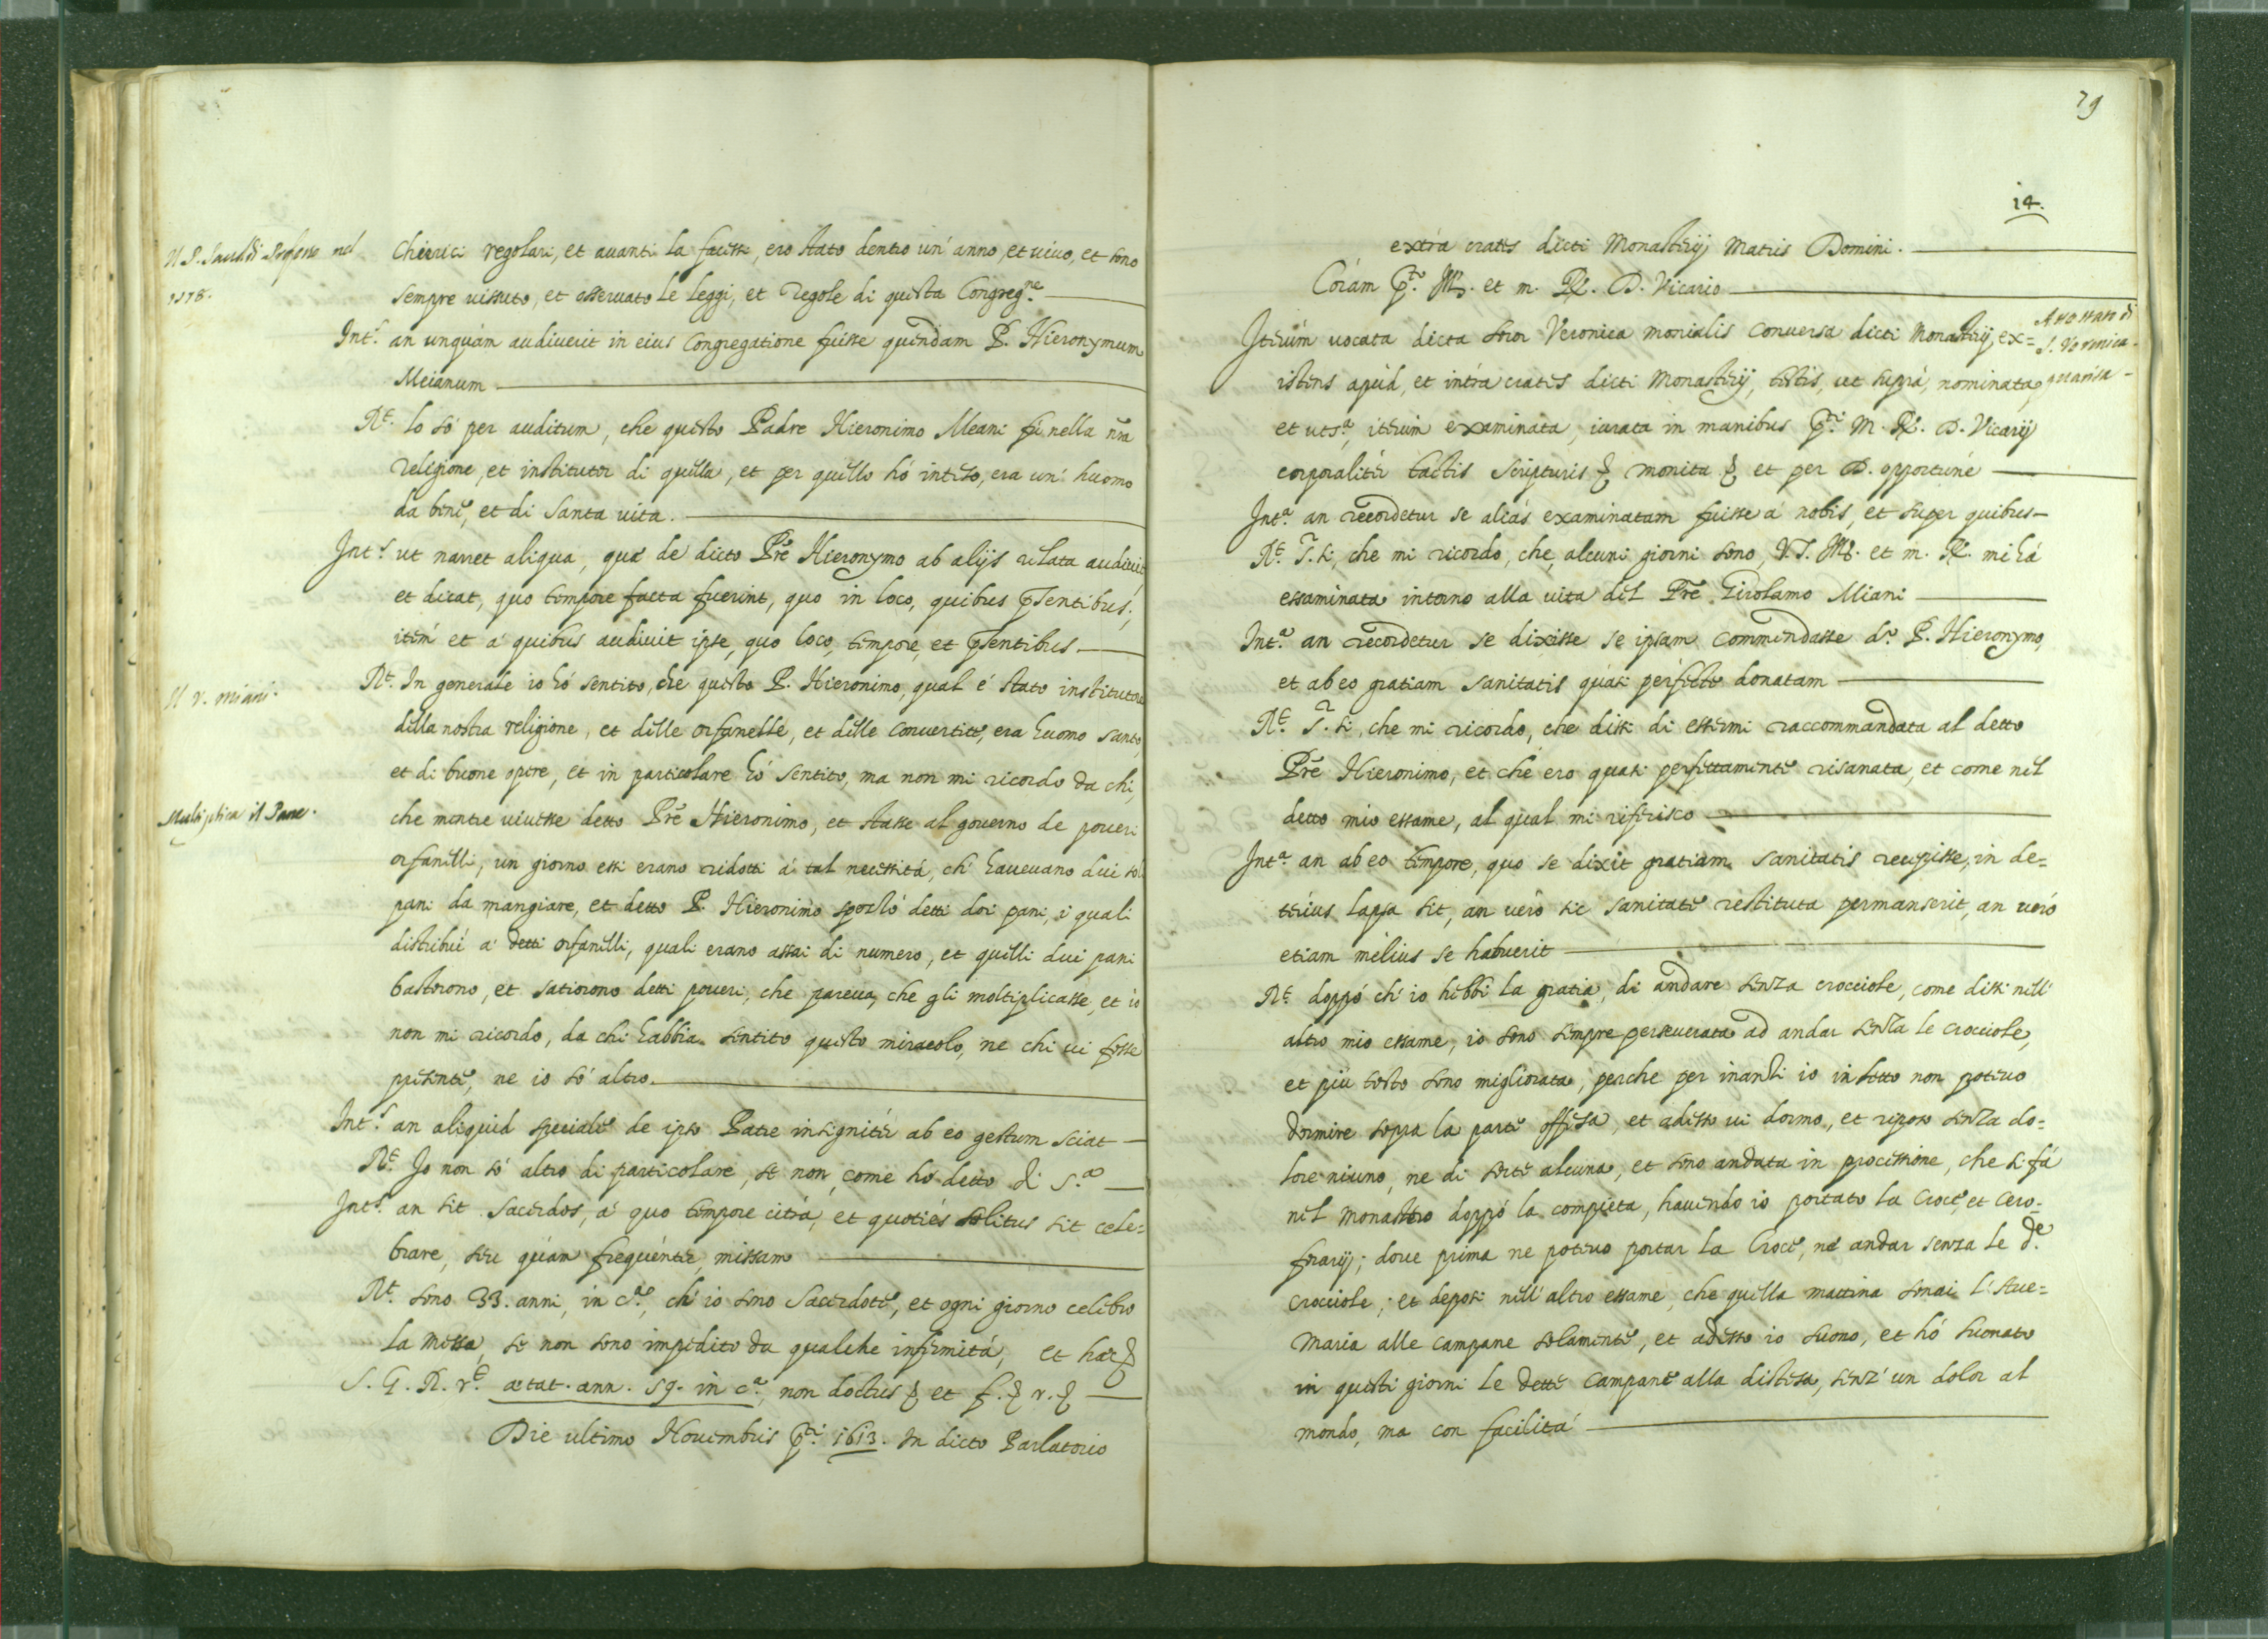 Il P. Professo nel
1578.
Chierici regolari, et auanti la facessi, ero stato dentro un' anno, et uiuo, et sono
sempre uissuto, et osseruato le leggi, et regole di questa Congreg.ne
Int.s an unquàm audiuerit in eius Congregatione fuisse quendam P. Hieronymum
Meianum
R.t lo só per auditum, che questo Padre Hieronimo Meani fù nella nra
religione, et institutor di quella, et per quello hó inteso, era un' huomo
da bene, et di santa uita.
Int.s ut narret aliqua, quae de dicto Pre Hieronymo ab alijs relata audiuit,
et dicat, quo tempore facta fuerint, quo in loco, quibus pñtibus;
item et à quibus audiuit ipse, quo loco, tempore, et pñtibus
Il v. miani.
R.t In generale io hó sentito, che questo P. Hieronimo, qual é stato institutore
della nostra religione, et delle orfanelle, et delle conuertite, era huomo santo
et di buone opere, et in particolare hó sentito, ma non mi ricordo da chi,
Multiplica il Pane.
che mentre uiuesse detto Pre Hieronimo, et stasse al gouerno de poueri
orfanelli, un giorno essi erano ridotti á tal necessitá, ch' haueuano dui soli
pani da mangiare, et detto P. Hieronimo spezzó detti doi pani, i quali
distribuí á detti orfanelli, quali erano assai di numero, et quelli dui pani
bastorono, et satiorono detti poueri, che pareua, che gli moltiplicasse, et io
non mi ricordo, da chi habbia sentito questo miracolo, ne chi ui fosse
presente, ne io só altro.
Int.s an aliquid speciale de ipso Patre insignitér ab eo gestum sciat
R.t Io non só altro di particolare, se non, come hó detto di s.a
Int.s an sit sacerdos, á quo tempore citrá, et quotiés solitus sit cele=
brare, seu quàm frequénter, missam
R.t sono 33. anni, in c.a, ch' io sono Sacerdote, et ogni giorno celebro
la messa, se non sono impedito da qualche infermitá, et haec
S. G. R. r.t aetat. ann. 59. in c.a, non doctus et f. r.
Die ultimo Nouembris p.ti 1613. In dicto Parlatorio
29
14.
extra crates dicti Monasterij Matris Domini.
Coràm p.to M. et m. R. D. Vicario
Attestato di
S. Veronica
guarisa
Iterùm uocata dicta soror Veronica monialis Conuersa dicti Monasterij, ex=
istens apud, et intra crates dicti Monasterij, testis, ut suprà, nominata,
et uts.a, iterùm examinata, iurata in manibus p.ti M. R. D. Vicarij
corporalitèr tactis scripturis monita et per D. opportuné
Int.a an recordetur se aliás examinatam fuisse à nobis, et super quibus
R.t S.r si, che mi ricordo, che, alcuni giorni sono, V. S. M. et m. R. mi há
essaminata intorno alla uita del Pre Girolamo Miani
Int.a an recordetur se dixisse se ipsam commendasse d.o P. Hieronymo,
et ab eo gratiam sanitatis quasi perfecte donatam
R.t S.r si, che mi ricordo, che dissi di essermi raccommandata al detto
Pre Hieronimo, et che ero quasi perfettamente risanata, et come nel
detto mio essame, al qual mi riferisco
Int.a an ab eo tempore, quo se dixit gratiam sanitatis recepisse, in de=
terius lapsa sit, an uerò sic sanitate restituta permanserit, an ueró
etiam melius se habuerit
R.t doppó ch' io hebbi la gratia, di andare senza crocciole, come dissi nell'
altro mio essame, io sono sempre perseuerata ad andar senza le crocciole,
et più tosto sono migliorata; perche per inanzi io in letto non poteuo
dormire sopra la parte offesa, et adesso ui dormo, et riposo senza do=
lore niuno, ne di sorte alcuna, et sono andata in processione, che si fá
nel monastero doppó la compieta, hauendo io portato la Croce, et cero=
ferarij; doue prima ne poteuo portar la Croce, né andar senza le d.e
crocciole; et deposi nell' altro essame, che quella mattina sonai l'Aue=
maria alle campane solamente, et adesso io suono, et hó suonato
in questi giorni le dette campane alla distesa, senz' un dolor al
mondo, ma con facilitá